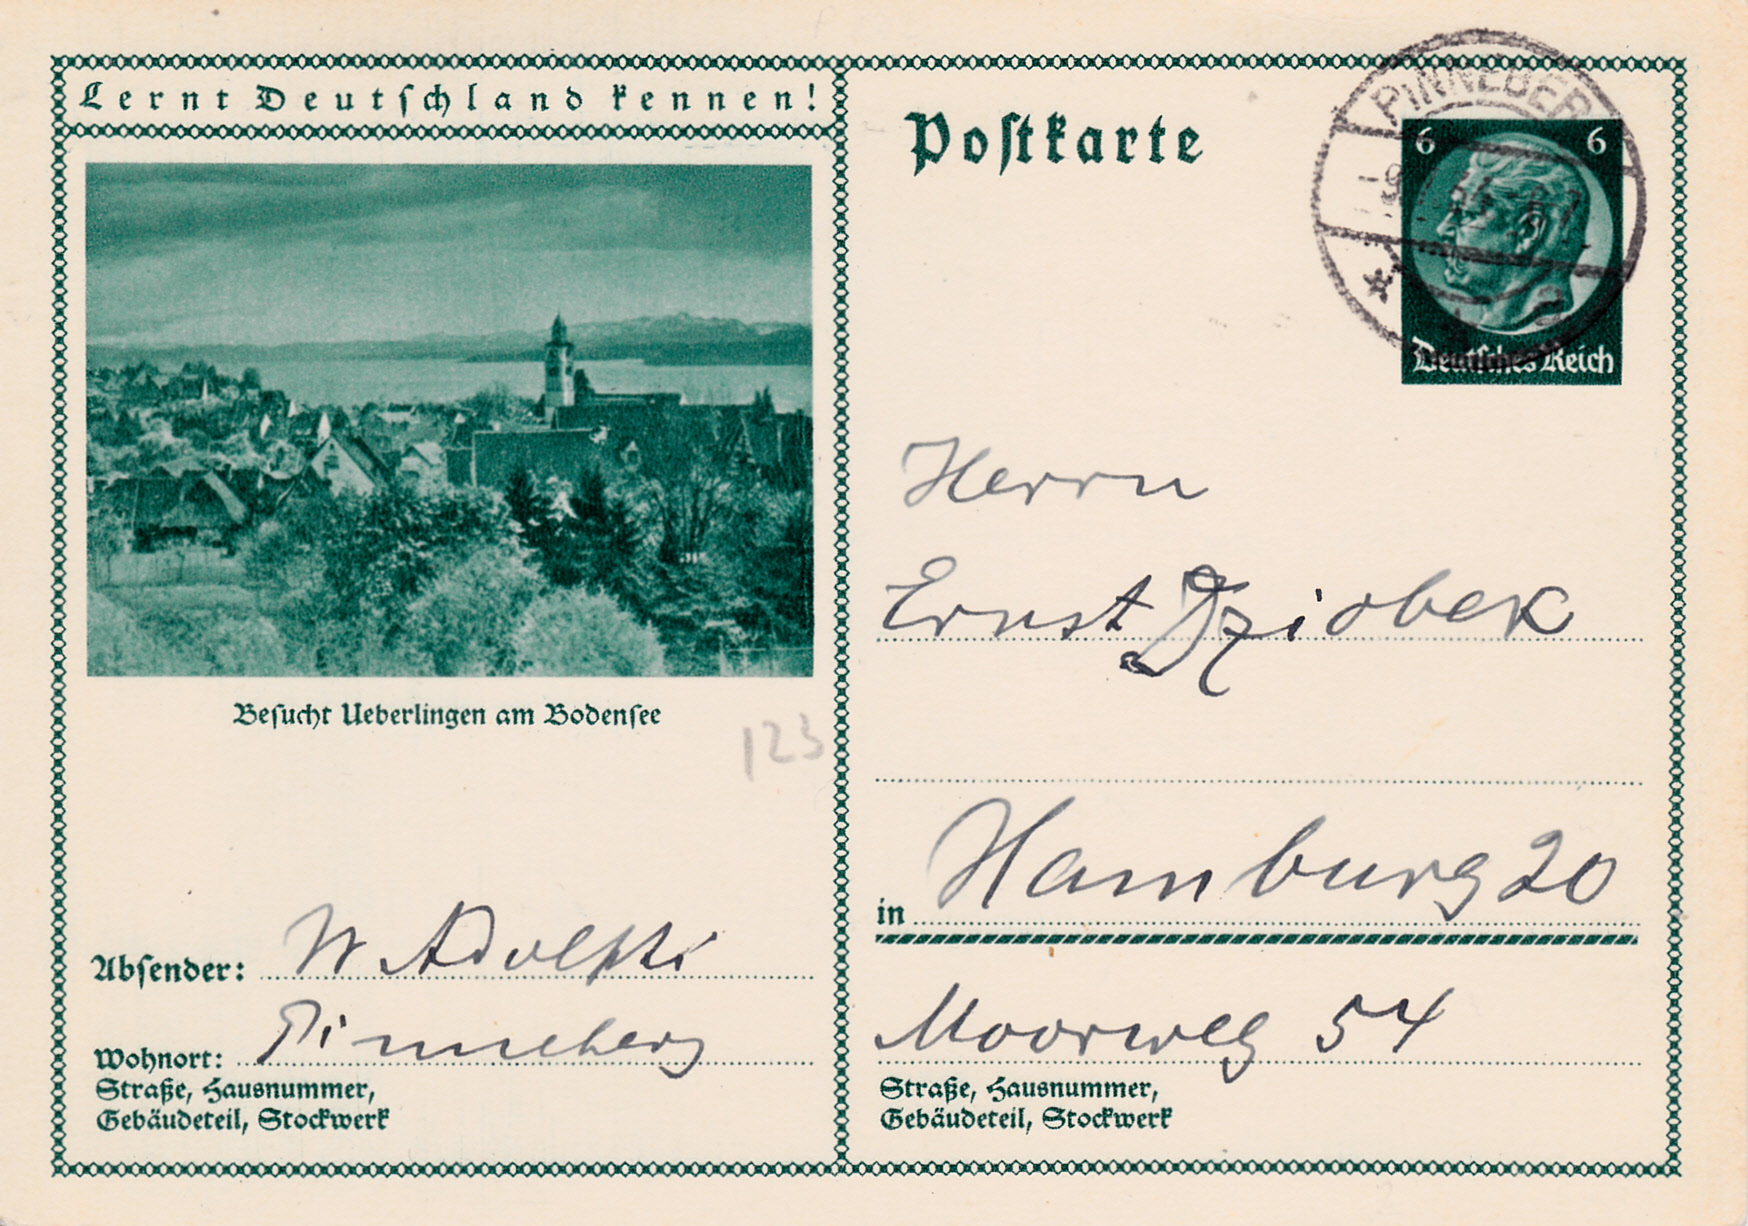 Lernt Deutſchland kennen!
Beſucht Ueberlingen am Bodenſee
123
Abſender: W Adolphi
Wohnort: Pinneberg
Straße, Hausnummer,
Gebäudeteil, Stockwerk
Poſtkarte
PINNEBERG
6 6
Deutſches Reich
Herrn
Ernst Dziobek
in Hamburg 20
Moorweg 54
Straße, Hausnummer,
Gebäudeteil, Stockwerk